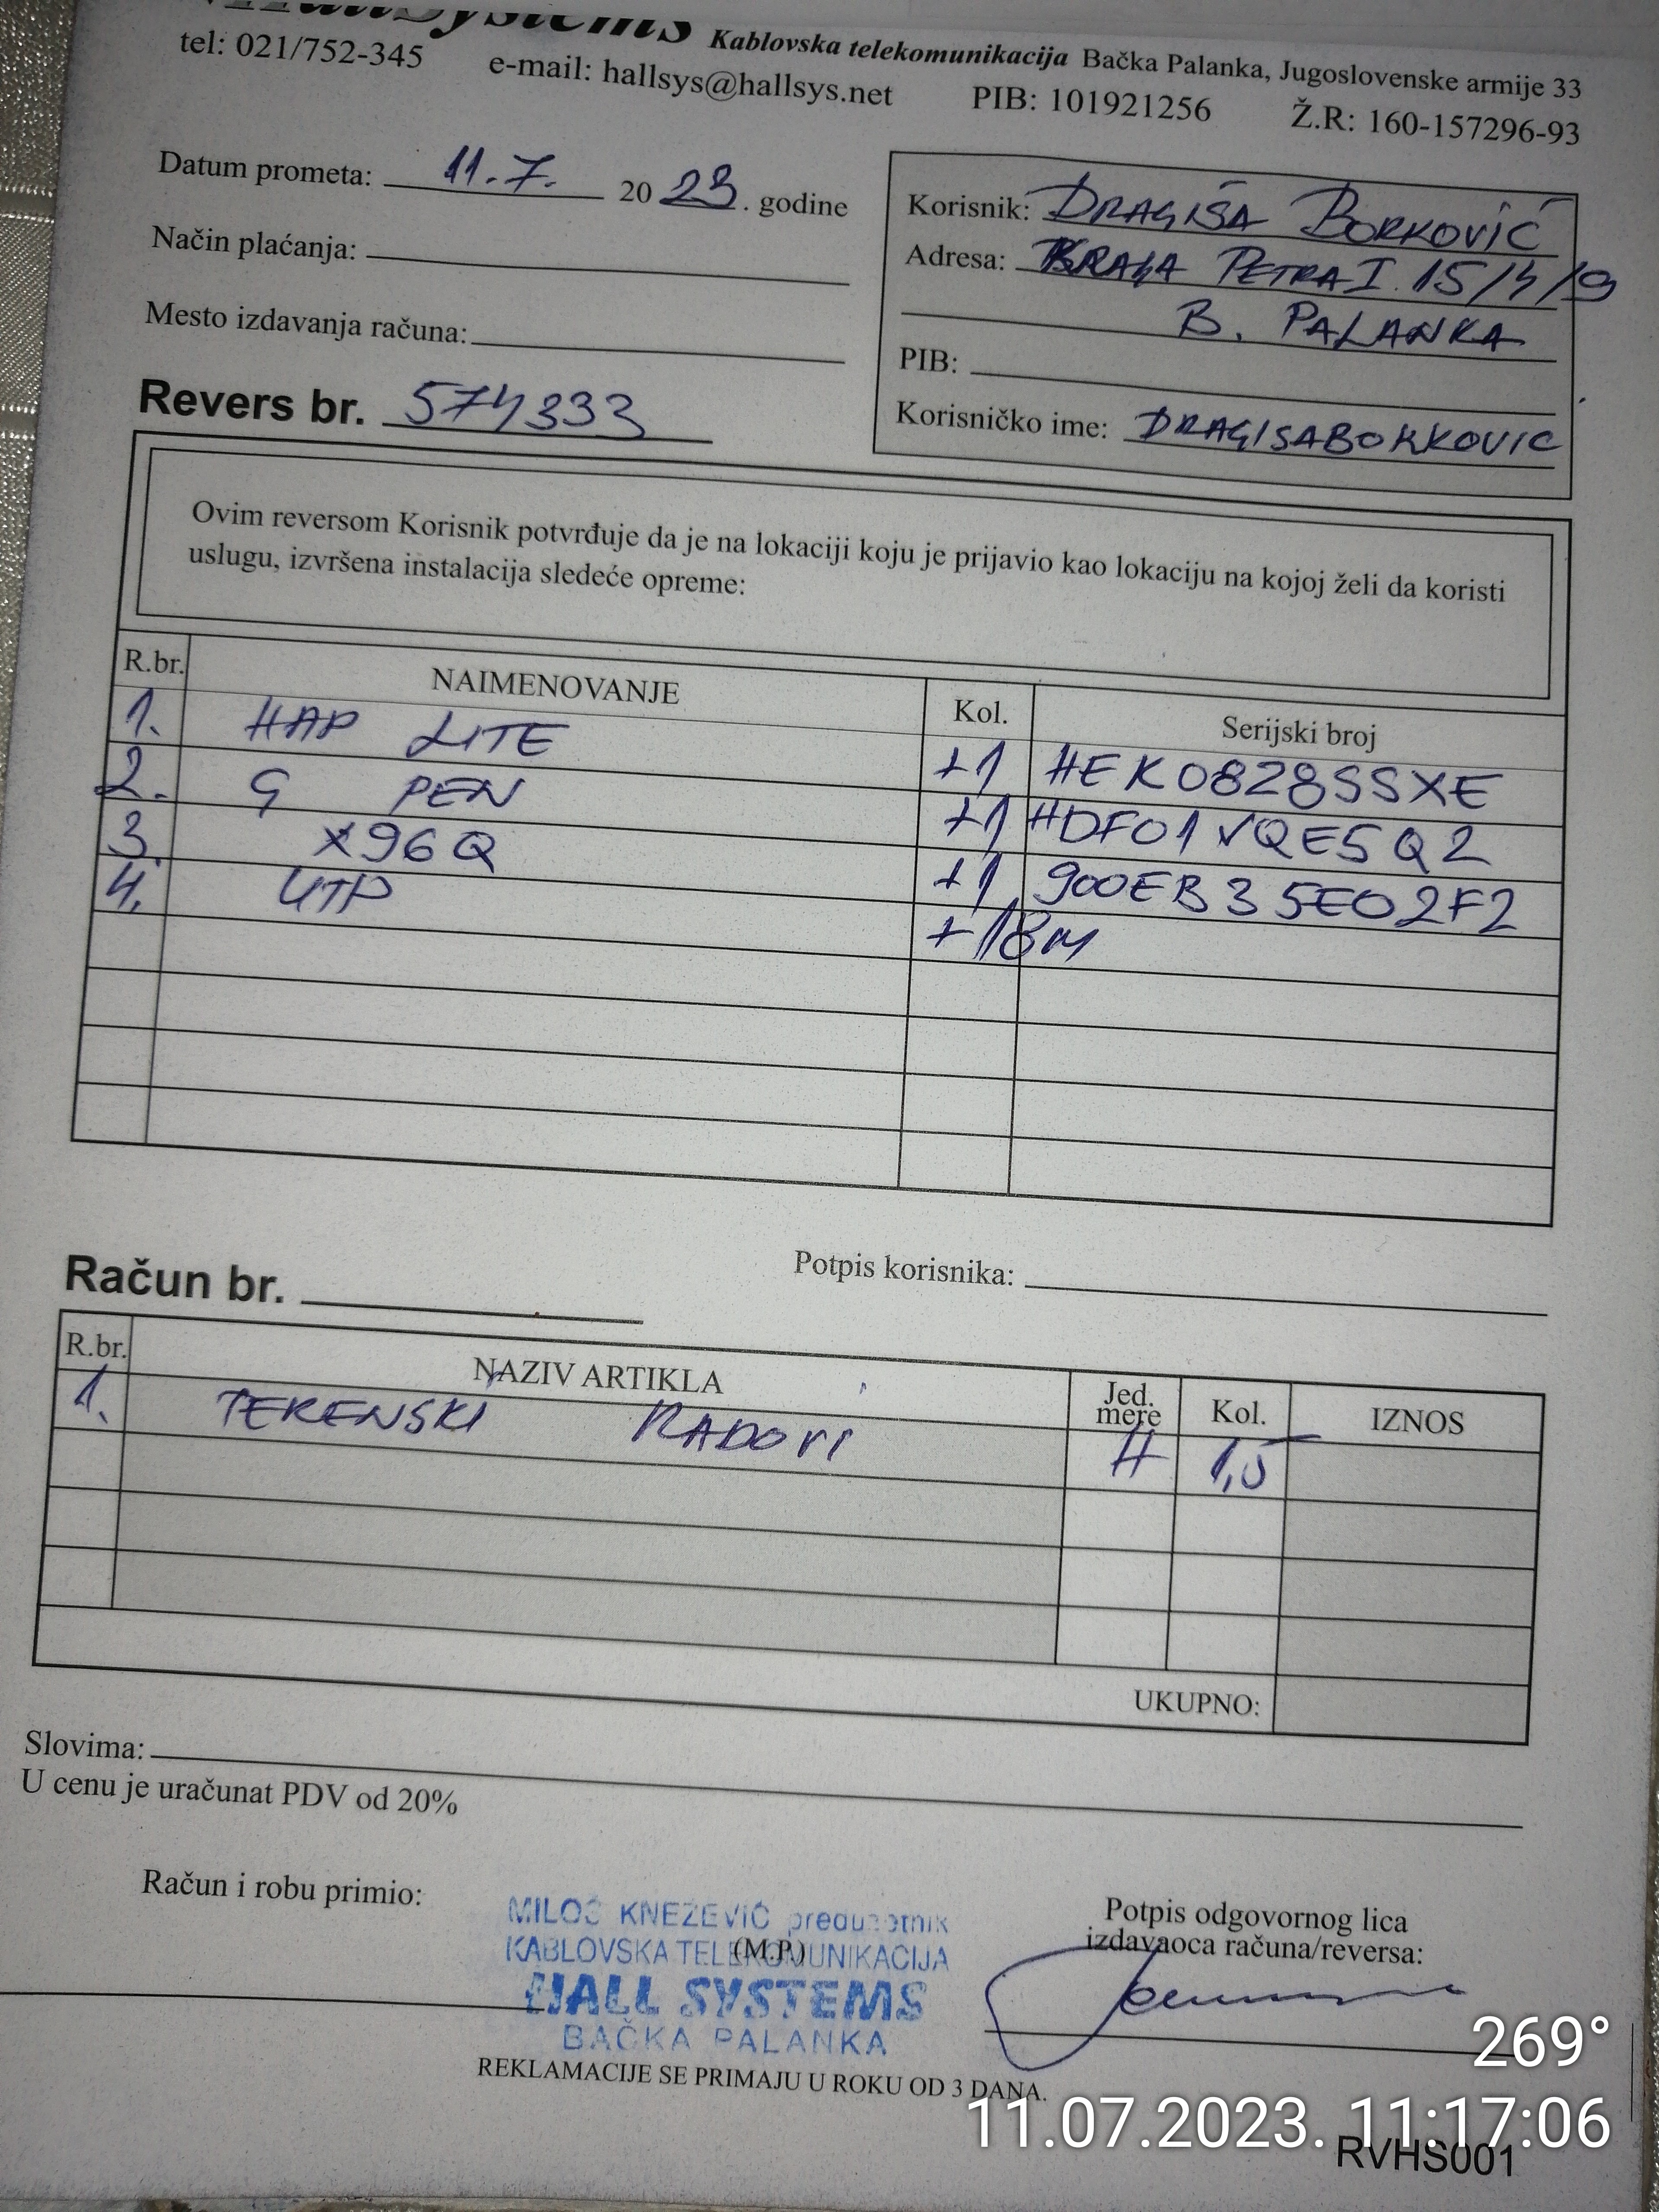 HallSystems Kablovska telekomunikacija Bačka Palanka, Jugoslovenske armije 33
tel: 021/752-345 e-mail: hallsys@hallsys.net PIB: 101921256 Ž.R: 160-157296-93
Datum prometa: 11.7. 20 23. godine
Način plaćanja:
Mesto izdavanja računa:
Revers br. 574333
Korisnik: DRAGIŠA BORKOVIĆ
Adresa: KRALJA PETRA I 15/4/9
B. PALANKA
PIB:
Korisničko ime: DRAGISABORKOVIC
Ovim reversom Korisnik potvrđuje da je na lokaciji koju je prijavio kao lokaciju na kojoj želi da koristi
uslugu, izvršena instalacija sledeće opreme:
R.br. NAIMENOVANJE Kol. Serijski broj
1. HAP LITE +1 HEK0828SSXE
2. G PEN +1 HDF01VQE5Q2
3. X96Q +1 900EB35E02F2
4. UTP +18m
Potpis korisnika:
Račun br.
R.br. NAZIV ARTIKLA Jed. mere Kol. IZNOS
1. TERENSKI RADOVI H 1,5
UKUPNO:
Slovima:
U cenu je uračunat PDV od 20%
Račun i robu primio:
MILOŠ KNEŽEVIĆ preduzetnik
KABLOVSKA TELEKOMUNIKACIJA
(M.P.)
HALL SYSTEMS
BAČKA PALANKA
Potpis odgovornog lica
izdavaoca računa/reversa:
REKLAMACIJE SE PRIMAJU U ROKU OD 3 DANA.
269°
11.07.2023. 11:17:06
RVHS001